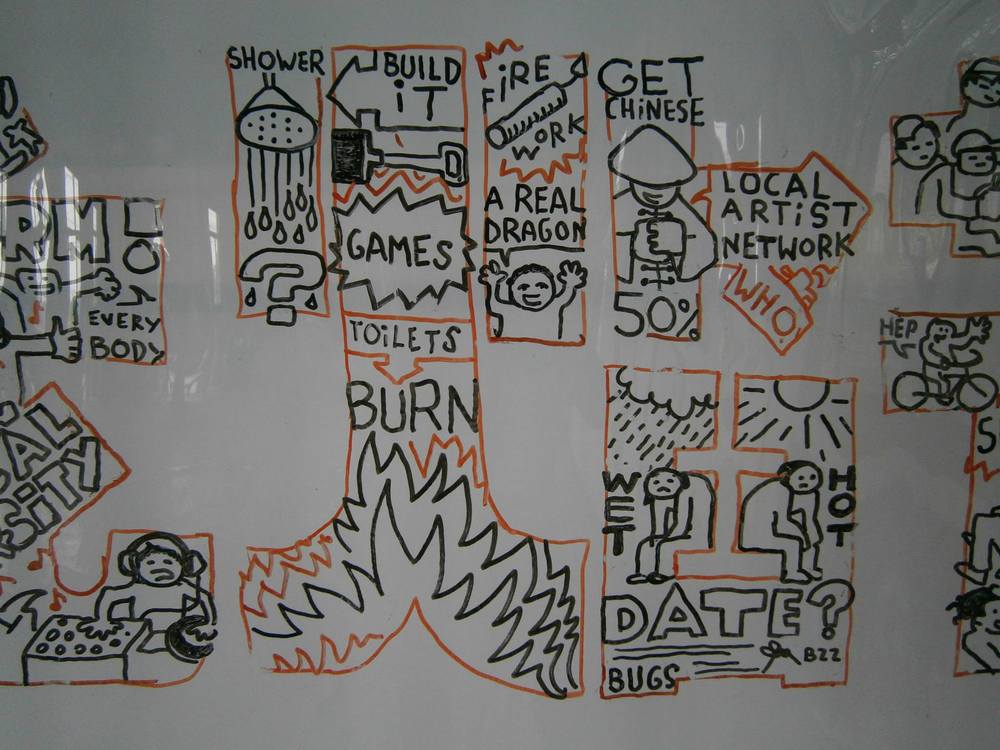 SHOWER
?
BUILD
iT
GAMES
TOiLETS
BURN
FiRE
WORK
A REAL
DRAGON
GET
CHiNESE
50%
LOCAL
ARTiST
NETWORK
WHO
WET
HOT
DATE?
BZZ
BUGS
RM!
EVERY
BODY
HEP
S